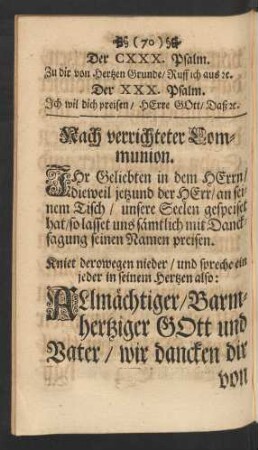 (70)
Der CXXX. Psalm.
Zu dir von Hertzen Grunde/ Ruff ich aus ꝛc.
Der XXX. Psalm.
Ich wil dich preisen/ HErre GOtt/ Daß ꝛc.
Nach verrichteter Com-
munion.
IHr Geliebten in dem HErrn/
dieweil jetzund der HErr/ an sei-
nem Tisch/ unsere Seelen gespeiset
hat/ so lasset uns sämtlich mit Danck-
sagung seinen Namen preisen.
Kniet derowegen nieder/ und spreche ein
jeder in seinem Hertzen also:
ALlmächtiger/ Barm-
hertziger GOtt und
Vater/ wir dancken dir
von